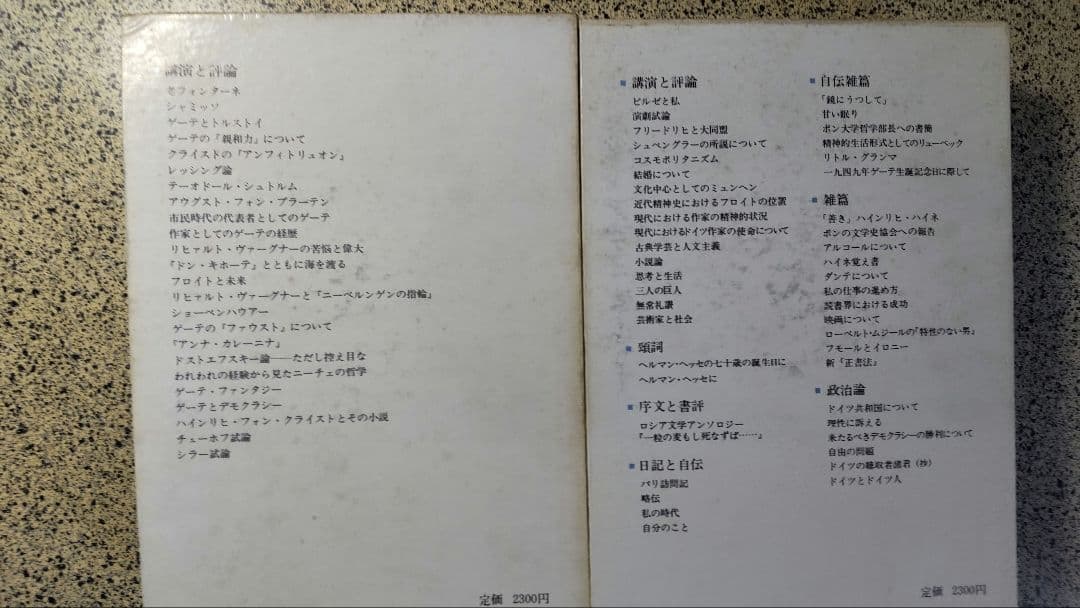 講演と評論
老フォンターネ
シャミッソ
ゲーテとトルストイ
ゲーテの『親和力』について
クライストの『アンフィトリュオン』
レッシング論
テーオドール・シュトルム
アウグスト・フォン・プラーテン
市民時代の代表者としてのゲーテ
作家としてのゲーテの経歴
リヒァルト・ヴァーグナーの苦悩と偉大
『ドン・キホーテ』とともに海を渡る
フロイトと未来
リヒァルト・ヴァーグナーと『ニーベルンゲンの指輪』
ショーペンハウアー
ゲーテの『ファウスト』について
『アンナ・カレーニナ』
ドストエフスキー論——ただし控え目な
われわれの経験から見たニーチェの哲学
ゲーテ・ファンタジー
ゲーテとデモクラシー
ハインリヒ・フォン・クライストとその小説
チェーホフ試論
シラー試論
定価 2300円
講演と評論
ビルゼと私
演劇試論
フリードリヒと大同盟
シュペングラーの所説について
コスモポリタニズム
結婚について
文化中心としてのミュンヘン
近代精神史におけるフロイトの位置
現代における作家の精神的状況
現代におけるドイツ作家の使命について
古典学芸と人文主義
小説論
思考と生活
三人の巨人
無常礼讃
芸術家と社会
頌詞
ヘルマン・ヘッセの七十歳の誕生日に
ヘルマン・ヘッセに
序文と書評
ロシア文学アンソロジー
『一粒の麦もし死なずば……』
日記と自伝
パリ訪問記
略伝
私の時代
自分のこと
自伝雑篇
「鏡にうつして」
甘い眠り
ボン大学哲学部長への書簡
精神的生活形式としてのリューベック
リトル・グランマ
一九四九年ゲーテ生誕記念日に際して
雑篇
「善き」ハインリヒ・ハイネ
ボンの文学史協会への報告
アルコールについて
ハイネ覚え書
ダンテについて
私の仕事の進め方
読書界における成功
映画について
ローベルト・ムジールの『特性のない男』
フモールとイロニー
新『正書法』
政治論
ドイツ共和国について
理性に訴える
来たるべきデモクラシーの勝利について
自由の問題
ドイツの聴取者諸君（抄）
ドイツとドイツ人
定価 2300円